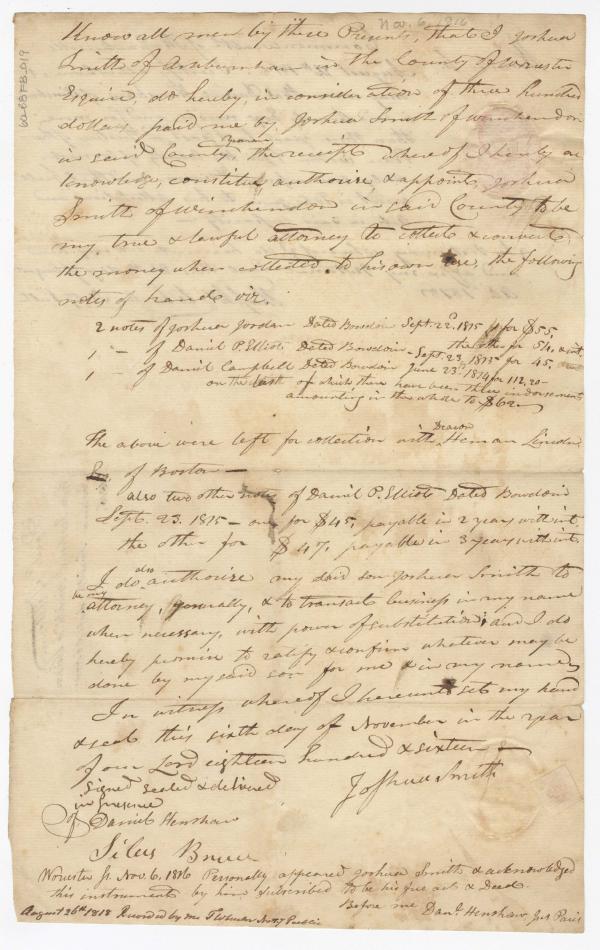 Nov. 6, 1816
Know all men by these Presents, that I Joshua
Smith of Ashburnham in the County of Worcester
Esquire, do hereby, in consideration of three hundred
dollars paid me by Joshua Smith of Winchendon
in said County, Yeoman the receipt whereof I hereby ac
knowledge, constitute, authorize, & appoint Joshua
Smith of Winchendon in said County to be
my true & lawful attorney to collect & convert
the money when collected to his own use, the following
notes of hand viz.
2 notes of Joshua Jordan Dated Bowdoin Sept. 22d. 1815 1 for $55,
the other for 54, & int.
1 — of Daniel P. Elliot Dated Bowdoin - Sept. 23, 1815 for 45,
1 — of Daniel Campbell Dated Bowdoin June 23d. 1814 for 112,20—
on the last of which there have been three indorsements
amounting in the whole to $62—
The above were left for collection with Deacon Heman Lincoln
of Boston —
also two other notes of Daniel P. Elliot Dated Bowdoin
Sept. 23. 1815 — one for $45, payable in 2 years with int.
the other for $47, payable in 3 years with int.
I do also authorize my said son Joshua Smith to
be my attorney, generally, & to transact business in my name
when necessary, with power of substitution; and I do
hereby promise to ratify & confirm whatever may be
done by my said son for me & in my name,
In witness whereof I hereunto set my hand
& seal this sixth day of November in the year
of our Lord eighteen hundred & sixteen —
Signed sealed & delivered
in presence
of Daniel Henshaw
Joshua Smith
Silas Bruce
Worcester ss. Nov. 6, 1816 Personally appeared Joshua Smith & acknowledged
this instrument by him subscribed to be his free act & Deed.
Before me Danl. Henshaw Jus Pacis
August 26th 1818 Recorded by me Not'y Public